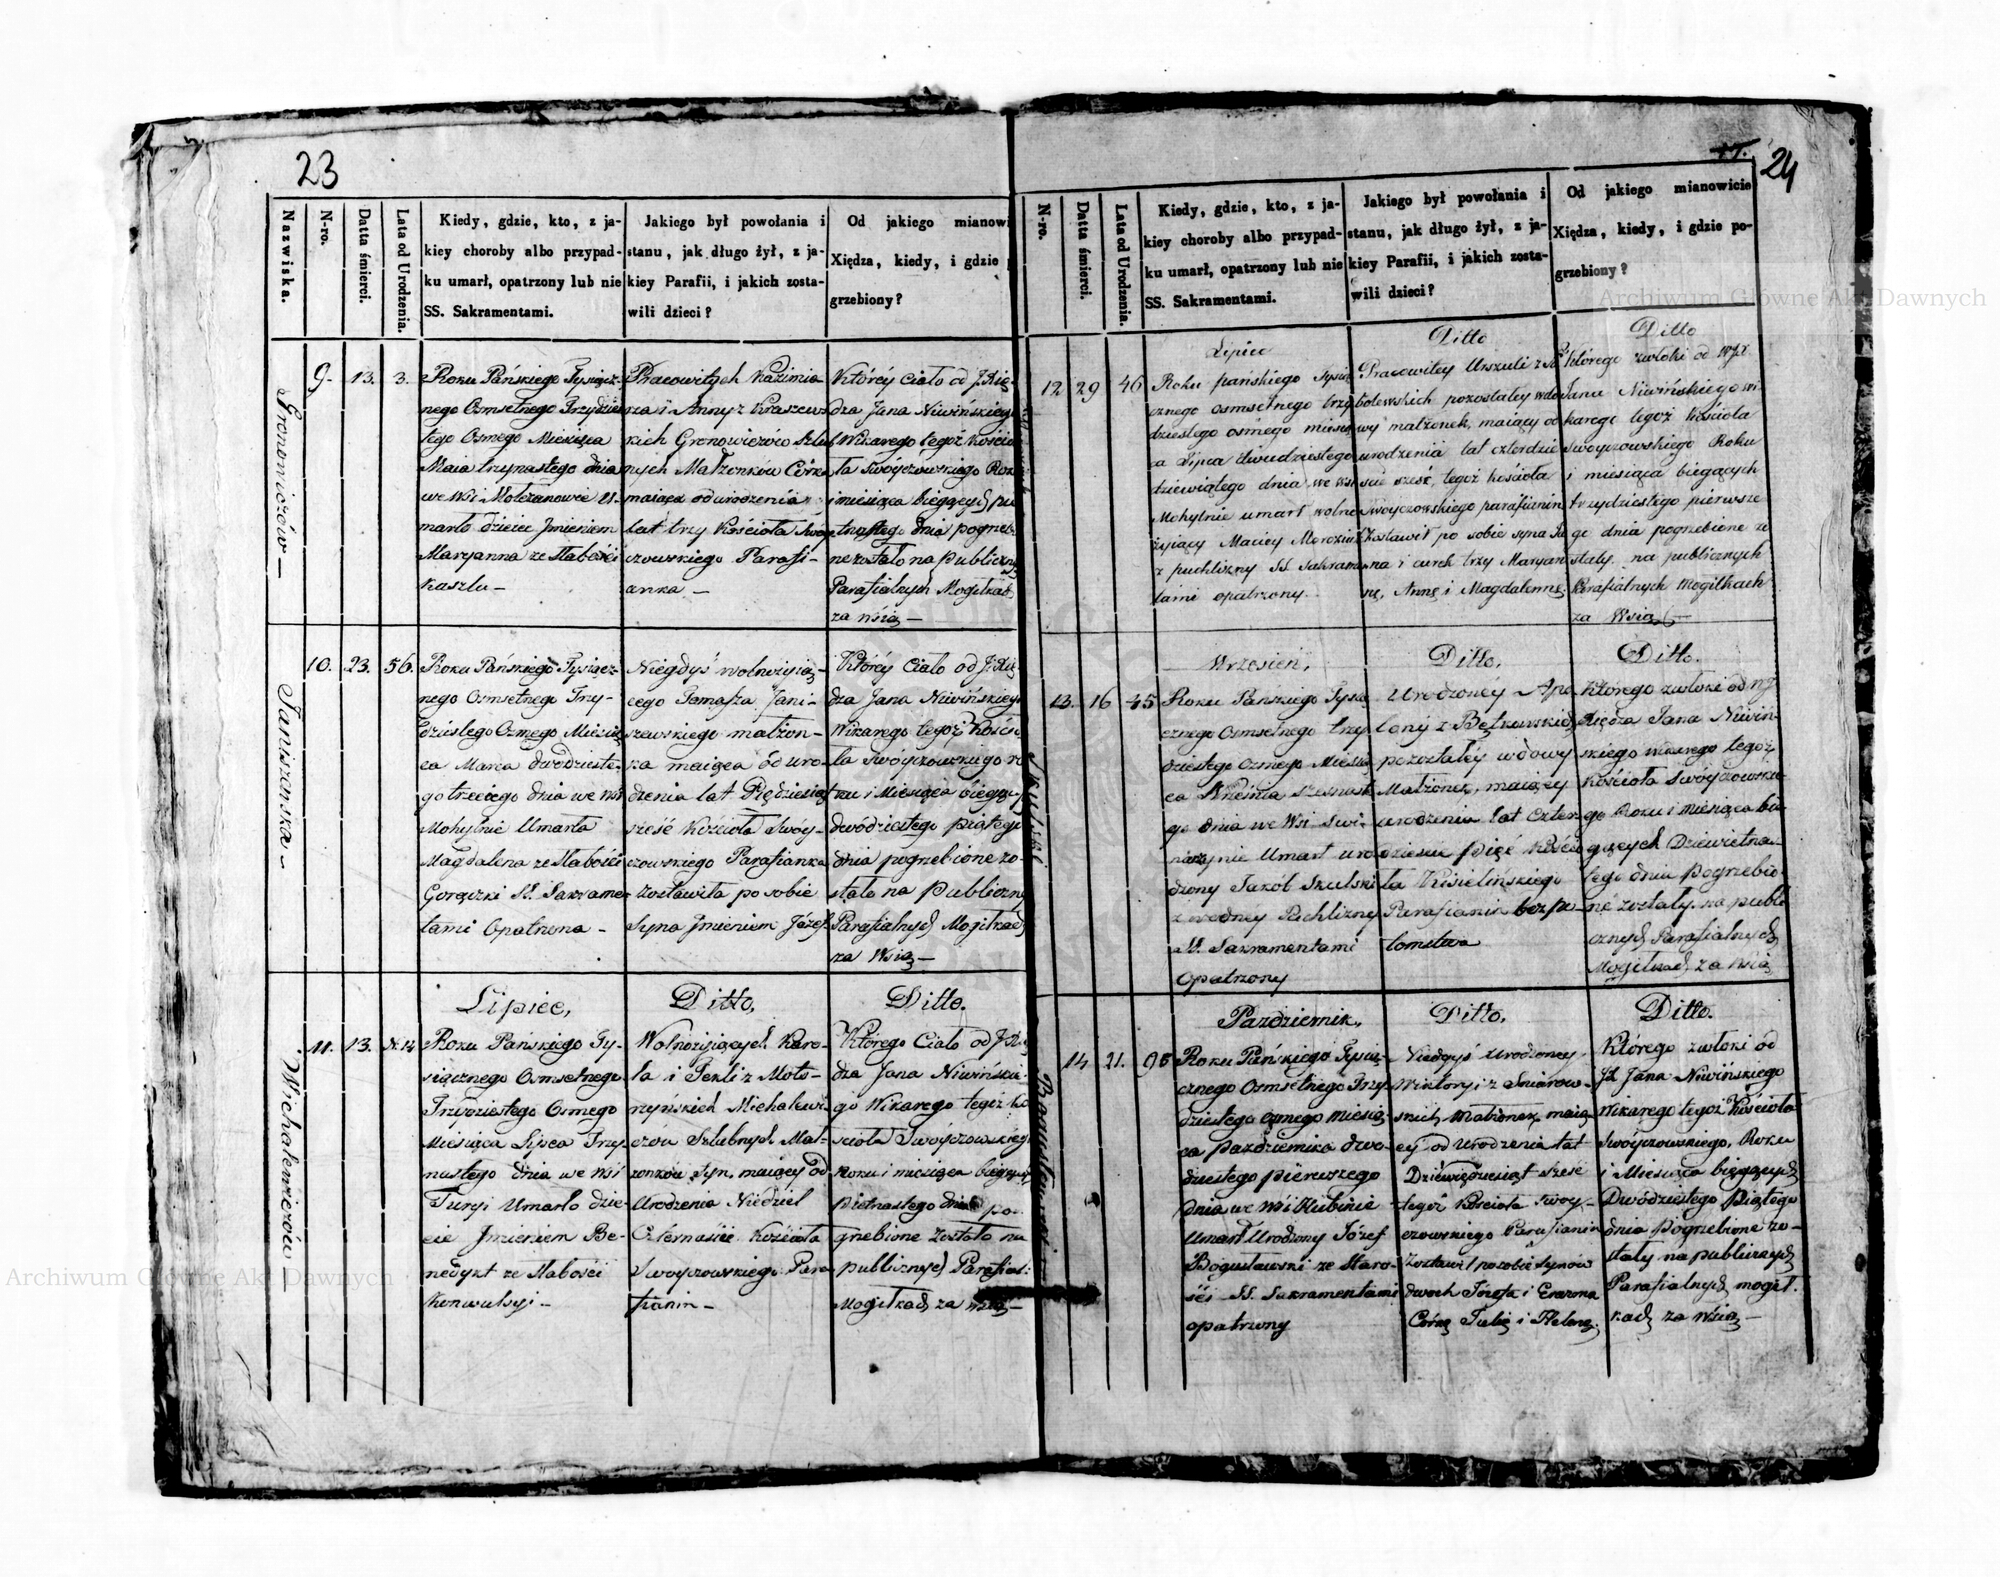 23
Nazwiska.
N-ro.
Datta śmierci.
Lata od Urodzenia.
Kiedy, gdzie, kto, z ja-
kiey choroby albo przypad-
ku umarł, opatrzony lub nie
SS. Sakramentami.
Jakiego był powołania i
stanu, jak długo żył, z ja-
kiey Parafii, i jakich zosta-
wili dzieci?
Od jakiego mianowi
Xiędza, kiedy, i gdzie
grzebiony?
Gronowiczów —
9. 13. 3.
Roku Pańskiego Tysiącz-
nego Osmsetnego Trzydzie
stego Osmego Miesiąca
Maia trzynastego dnia
we Wsi Mołczanowie u-
marło dziecie Jmieniem
Maryanna ze słabości
Kaszlu —
Pracowitych Kazimie-
rza i Anny z Kraszews
kich Gronowiczów Szlub
nych Małżonków Córka
maiąca od urodzenia
lat trzy Kościoła Swoy
czowskiego Parafi-
anka —
Którey Ciało od J. Xię-
dza Jana Niwińskieg
Wikarego tegoż Kościo
ła Swóyczowskiego Rok
i miesiąca bieżących pię
tnastego dnia pogrzeb
ne zostało na Publiczny
Parafialnych Mogiłkach
za wsią —
Janiszewska —
10. 23. 56.
Roku Pańskiego Tysiącz-
nego Osmsetnego Trzy-
dziestego Ozmego Miesią
ca Marca dwudzieste-
go trzeciego dnia we wsi
Mohylnie Umarła
Magdalena ze słabości
Gorączki SS. Sakrame-
tami Opatrzona —
Niegdyś wolnożyią-
cego Tomasza Jani-
szewskiego małżon-
ka maiąca od uro-
dzenia lat Pięćdziesiąt
sześć Kościoła Swóy-
czowskiego Parafianka
Zostawiła po sobie
Syna Jmieniem Józef
Którey Ciało od J. Xię
dza Jana Niwińskieg
Wikarego tegoż Kościo
ła Swóyczowskiego ro
ku i Miesiąca bieżący
dwódziestego piątego
dnia pogrzebione zo-
stało na Publiczny
Parafialnych Mogiłkach
za Wsią —
Michalewiczów —
Lipiec,
11. 13. N. 14
Roku Pańskiego Ty-
siącznego Osmsetnego
Trzydziestego Osmego
Miesiąca Lipca Trzy
nastego dnia we wsi
Turyi Umarło dzie-
cie Jmieniem Be-
nedykt ze słabości
Konwulsyi —
Ditto,
Wolnożyiących Karo-
la i Tekli z Moło-
żyńskich Michalewi
czów Szlubnych Mał-
żonków Syn, maiący od
Urodzenia Niedziel
Czternaście Kościoła
Swoyczowskiego Para
fianin —
Ditto.
Którego Ciało od J. Xię
dza Jana Niwińskie-
go Wikarego tegoż Ko
ścioła Swóyczowskieg
Roku i miesiąca bieżący
Piętnastego dnia po-
grzebione Zostało na
publicznych Parafial.
Mogiłkach za wsią —
17. 24
N-ro.
Datta śmierci.
Lata od Urodzenia.
Kiedy, gdzie, kto, z ja-
kiey choroby albo przypad-
ku umarł, opatrzony lub nie
SS. Sakramentami.
Jakiego był powołania i
stanu, jak długo żył, z ja-
kiey Parafii, i jakich zosta-
wili dzieci?
Od jakiego mianowicie
Xiędza, kiedy, i gdzie po-
grzebiony?
Lipiec
12 29 46
Roku pańskiego tysią
cznego osmsetnego trzy
dziestego osmego miesią
ca Lipca dwudziestego
dziewiątego dnia we wsi
Mohylnie umarł wolno
żyjący Maciey
z puchliny SS. Sakramen
tami opatrzony.
Ditto
Pracowitey Urszuli z
pozostałey wdo
wy małżonek, maiący od
urodzenia lat czterdzie
ści sześć, tegoż kościoła
Swoyczowskiego parafianin
Zostawił po sobie syna
i curek trzy Maryan
nę, Annę i Magdalennę.
Ditto
Którego zwłoki od WJX
Jana Niwińskiego wi-
karego tegoż kościoła
Swoyczowskiego Roku
i miesiąca bieżących
trzydziestego pierwsze
go dnia pogrzebione zo
stały na publicznych
Parafialnych Mogiłkach
za Wsią
Skulski
Wrzesień,
13. 16 45
Roku Pańskiego Tysią
cznego Osmsetnego trzy
dziestego Ozmego Miesią
ca Września szesnaste
go dnia we Wsi Swi-
narzynie Umarł uro
dzony Jakób Skulski
z wodney Puchliny
SS. Sakramentami
Opatrzony
Ditto,
Urodzoney Apo
lony z Bętkowskich
pozostałey wdowy
Małżonek, maiący
urodzenia lat czter
dzieście pięć Kościo
ła Kisielińskiego
Parafianin bez po-
tomstwa
Ditto.
Którego zwłoki od WJ
Xiędza Jana Niwiń-
skiego wikarego tegoż
Kościoła Swóyczowskie
go Roku i miesiąca bie
żących Dziewietna-
tego dnia Pogrzebio
ne zostały, na publi
cznych Parafialnych
Mogiłkach za Wsią
Październik,
14 21. 96
Roku Pańskiego Tysią-
cznego Osmsetnego Trzy
dziestego ozmego miesią
ca października dwo-
dziestego pierwszego
dnia we wsi Hubinie
Umarł Urodzony Józef
Bogusławski ze Staro-
ści SS. Sakramentami
opatrzony
Ditto,
Niedgyś Urodzoney
Wiktoryi z Sniarow-
skich Małżonek, maią
cy od Urodzenia lat
Dziewiędziesiąt sześć
tegoż Kościoła Swoy-
czowskiego Parafianin
Zostawił po sobie Synów
dwóch Józefa i Erazma
Córkę Julię i Helenę.
Ditto.
Którego zwłoki od
JX Jana Niwińskiego
Wikarego tegoż Kościoła
Swóyczowskiego, Roku
i Miesiąca bieżących
Dwódziestego Piątego
dnia Pogrzebione zo-
stały na publicznych
Parafialnych mogił.
kach za Wsią —
Archiwum Główne Akt Dawnych
Archiwum Główne Akt Dawnych